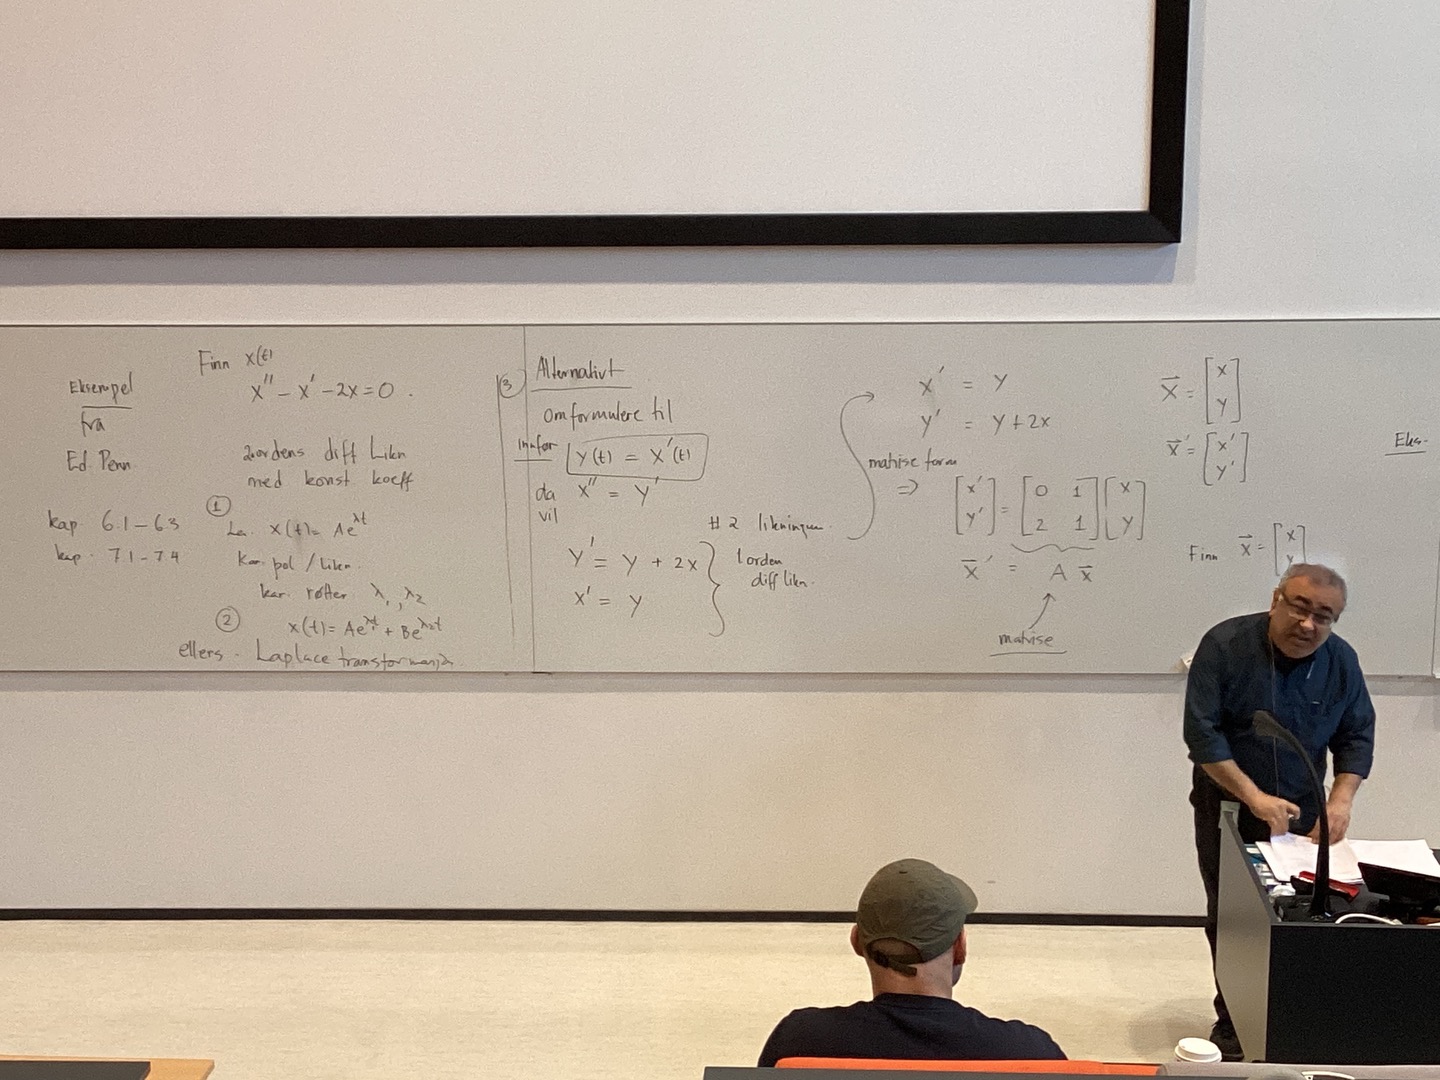 Eksempel
fra
Ed. Penn.
kap. 6.1 – 6.3
kap. 7.1 – 7.4
Finn x(t)
x'' − x' − 2x = 0 .
2.ordens diff Likn
med konst koeff
① La. x(t) = Ae^{λt}
Kar. pol / Likn.
kar. røtter λ₁, λ₂
② x(t) = Ae^{λ₁t} + Be^{λ₂t}
ellers - Laplace transformasjon.
③ Alternativt
omformulere til
innfør y(t) = x'(t)
da x'' = y'
vil
# 2 likninger
y' = y + 2x
x' = y
1.orden
diff likn.
x' = y
y' = y + 2x
matrise form
⇒ [x' y'] = [0 1; 2 1] [x y]
x̄' = A x̄
matrise
x⃗ = [x y]
x⃗' = [x' y']
Finn x⃗ = [x y]
Eks.